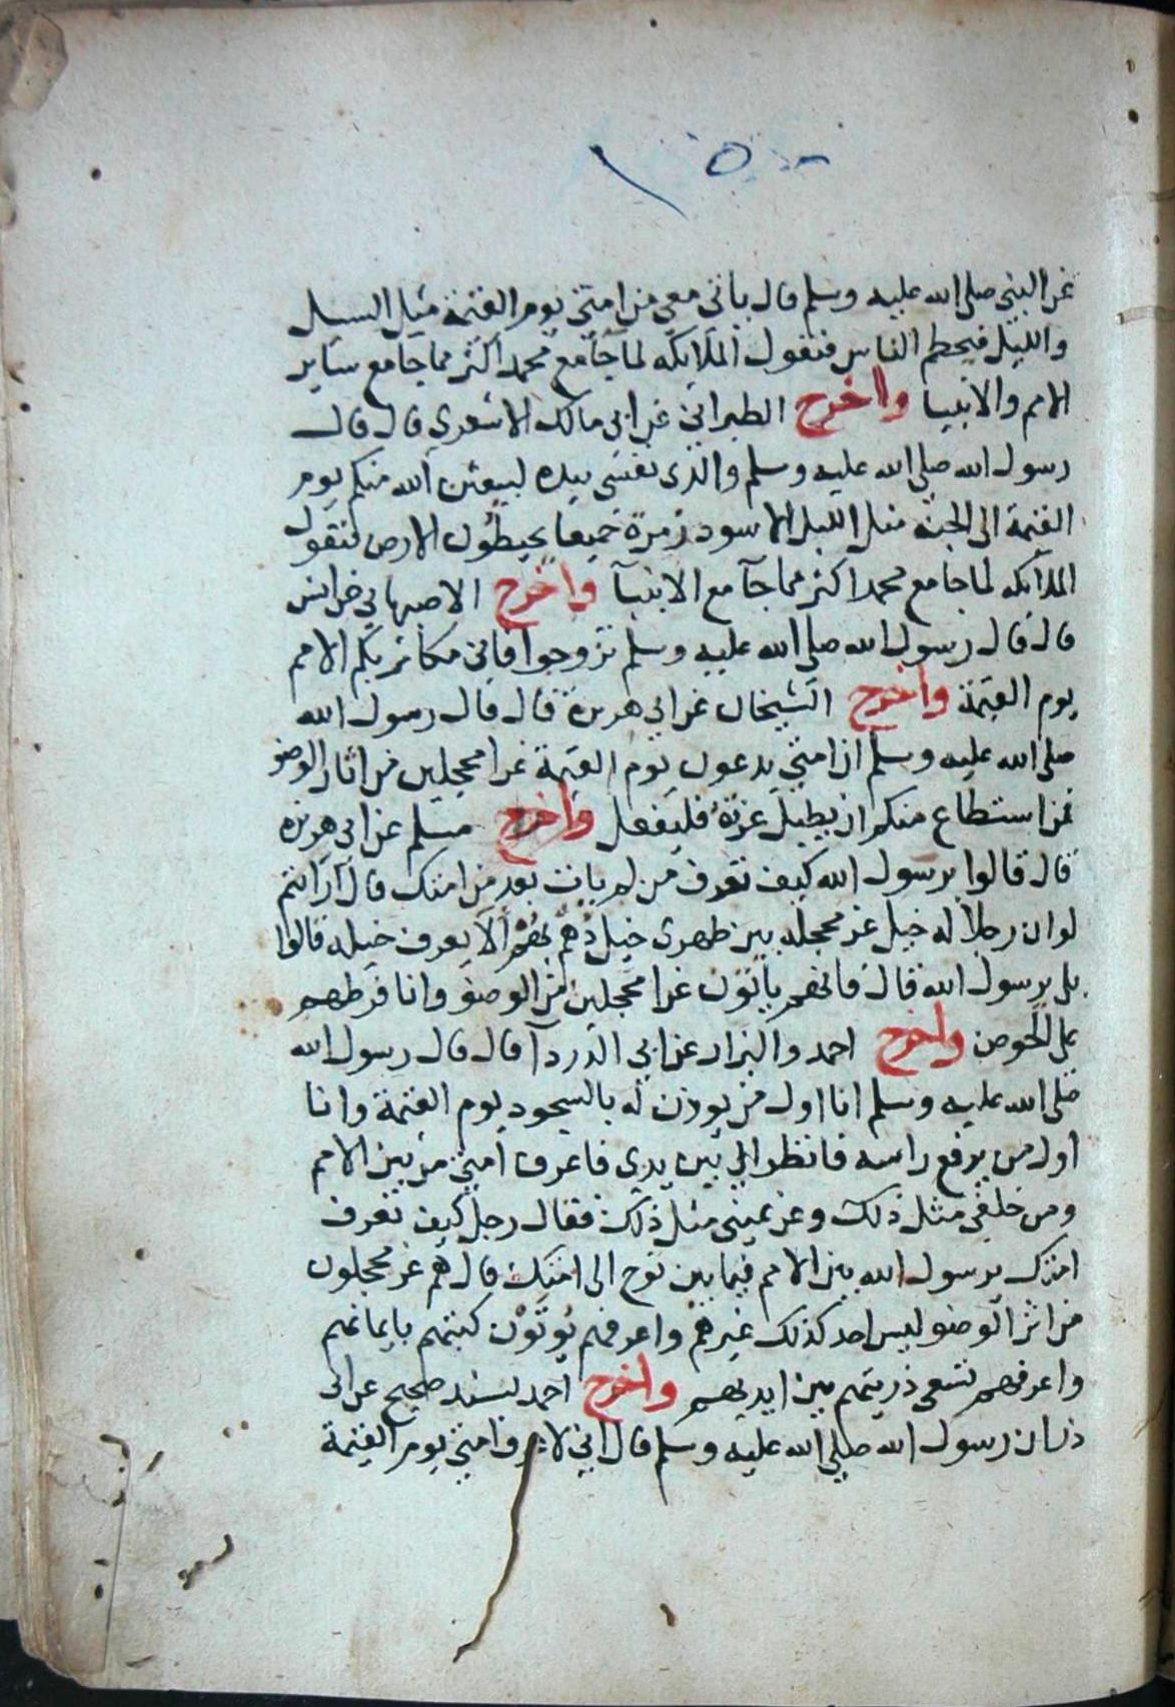 عن النبي صلى الله عليه وسلم قال ياتى معى من امتى يوم القيمة مثل السيل
والليل فيحطم الناس فتقول الملايكه لما جآ مع محمد اكثر مما جا مع ساير
الامم والانبيا واخرج الطبرانى عن ابى مالك الاشعري قال قال
رسول الله صلى الله عليه وسلم والذى نفسى بيده ليبعثن الله منكم يوم
القيمة الى الجنة مثل الليل الاسود زمرة جميعا يحيطون الارض لتقول
الملايكه لما جا مع محمد اكثر مما جآ مع الانبيآ واخرج الاصبهاني عن انس
قال قال رسول الله صلى الله عليه وسلم تزوجوا فانى مكاثر بكم الامم
يوم القيمة واخرج الشيخان عن ابي هريرة قال قال رسول الله
صلى الله عليه وسلم ان امتى يدعون يوم القيمة غرا محجلين من اثار الوضو
فمن استطاع منكم ان يطيل غرته فليفعل واخرج مسلم عن ابى هريره
قال قالوا يرسول الله كيف تعرف من لم يات بعد من امتك قال ارايتم
لو ان رجلا له خيل غر محجله بين ظهرى خيل دُهم بُهُم الا يعرف خيله قالوا
بلى يرسول الله قال فانهم ياتون غرا محجلين من الوضو وانا فرطهم
على الحوض واخرج احمد والبزار عن ابي الدردآ قال قال رسول الله
صلى الله عليه وسلم انا اول من يوذن له بالسجود يوم القيمة وانا
اول من يرفع راسه فانظر الى بين يدي فاعرف امتي من بين الامم
ومن خلفى مثل ذلك وعن يمينى مثل ذلك فقال رجل كيف تعرف
امتك يرسول الله بين الامم فيما بين نوح الى امتك قال هم غر محجلون
من اثر الوضو ليس احد كذلك غيرهم واعرفهم يوتون كتبهم بايمانهم
واعرفهم تسعى ذريتهم بين ايديهم واخرج احمد بسند صحيح عن ابى
ذر ان رسول الله صلى الله عليه وسلم قال انى لاعرف امتى يوم القيمة